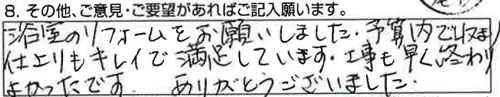 8. その他、ご意見・ご要望があればご記入願います。
浴室のリフォームをお願いしました。予算内で収まり
仕上りもキレイで満足しています。工事も早く終わり
よかったです。ありがとうございました。